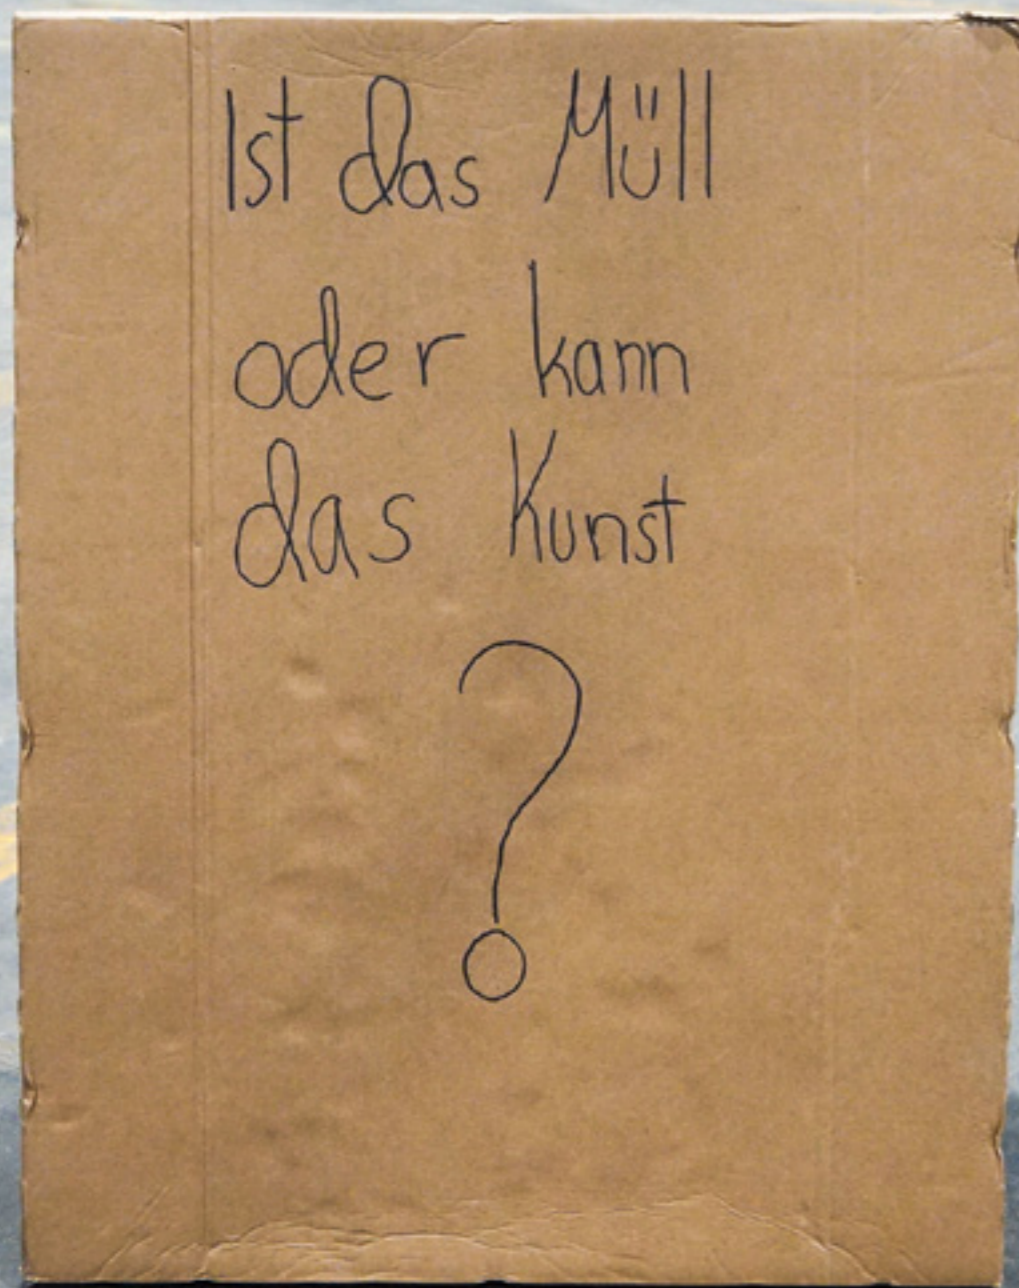 Ist das Müll
oder kann
das Kunst
?